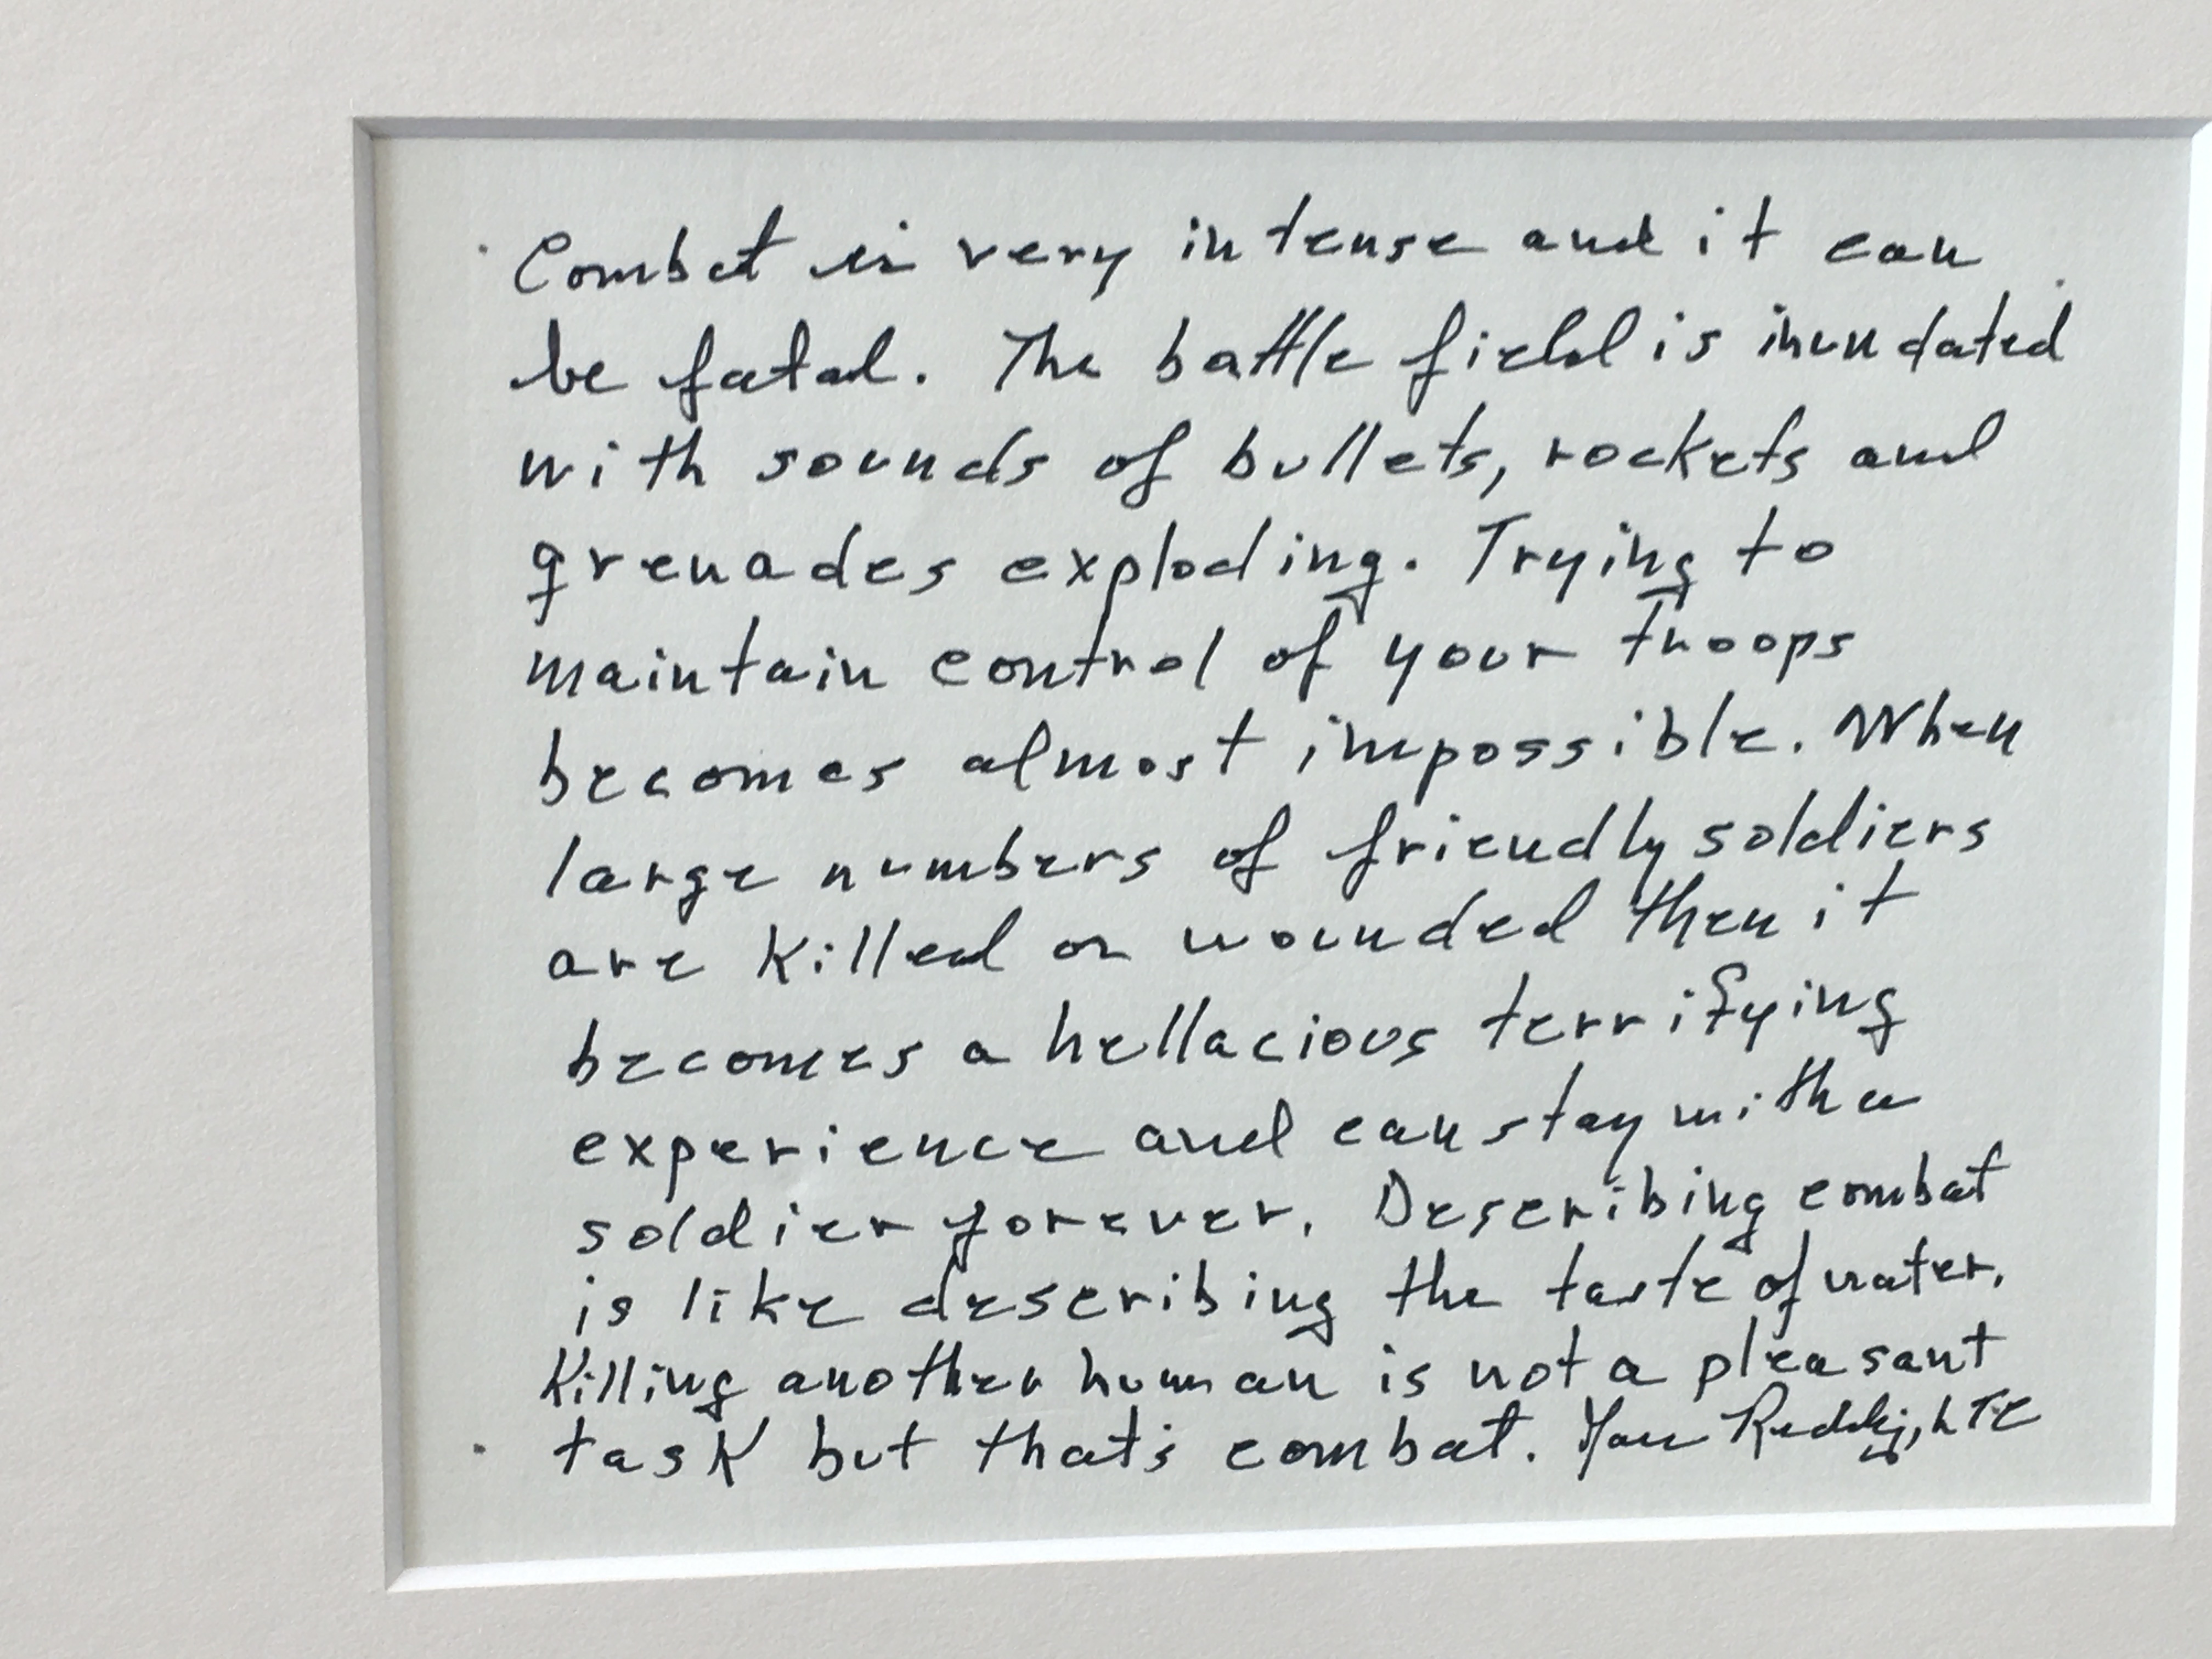 Combat is very intense and it can
be fatal. The battle field is inundated
with sounds of bullets, rockets and
grenades exploding. Trying to
maintain control of your troops
becomes almost impossible. When
large numbers of friendly soldiers
are killed or wounded then it
becomes a hellacious terrifying
experience and can stay with a
soldier forever. Describing combat
is like describing the taste of water.
Killing another human is not a pleasant
task but that's combat. LTC